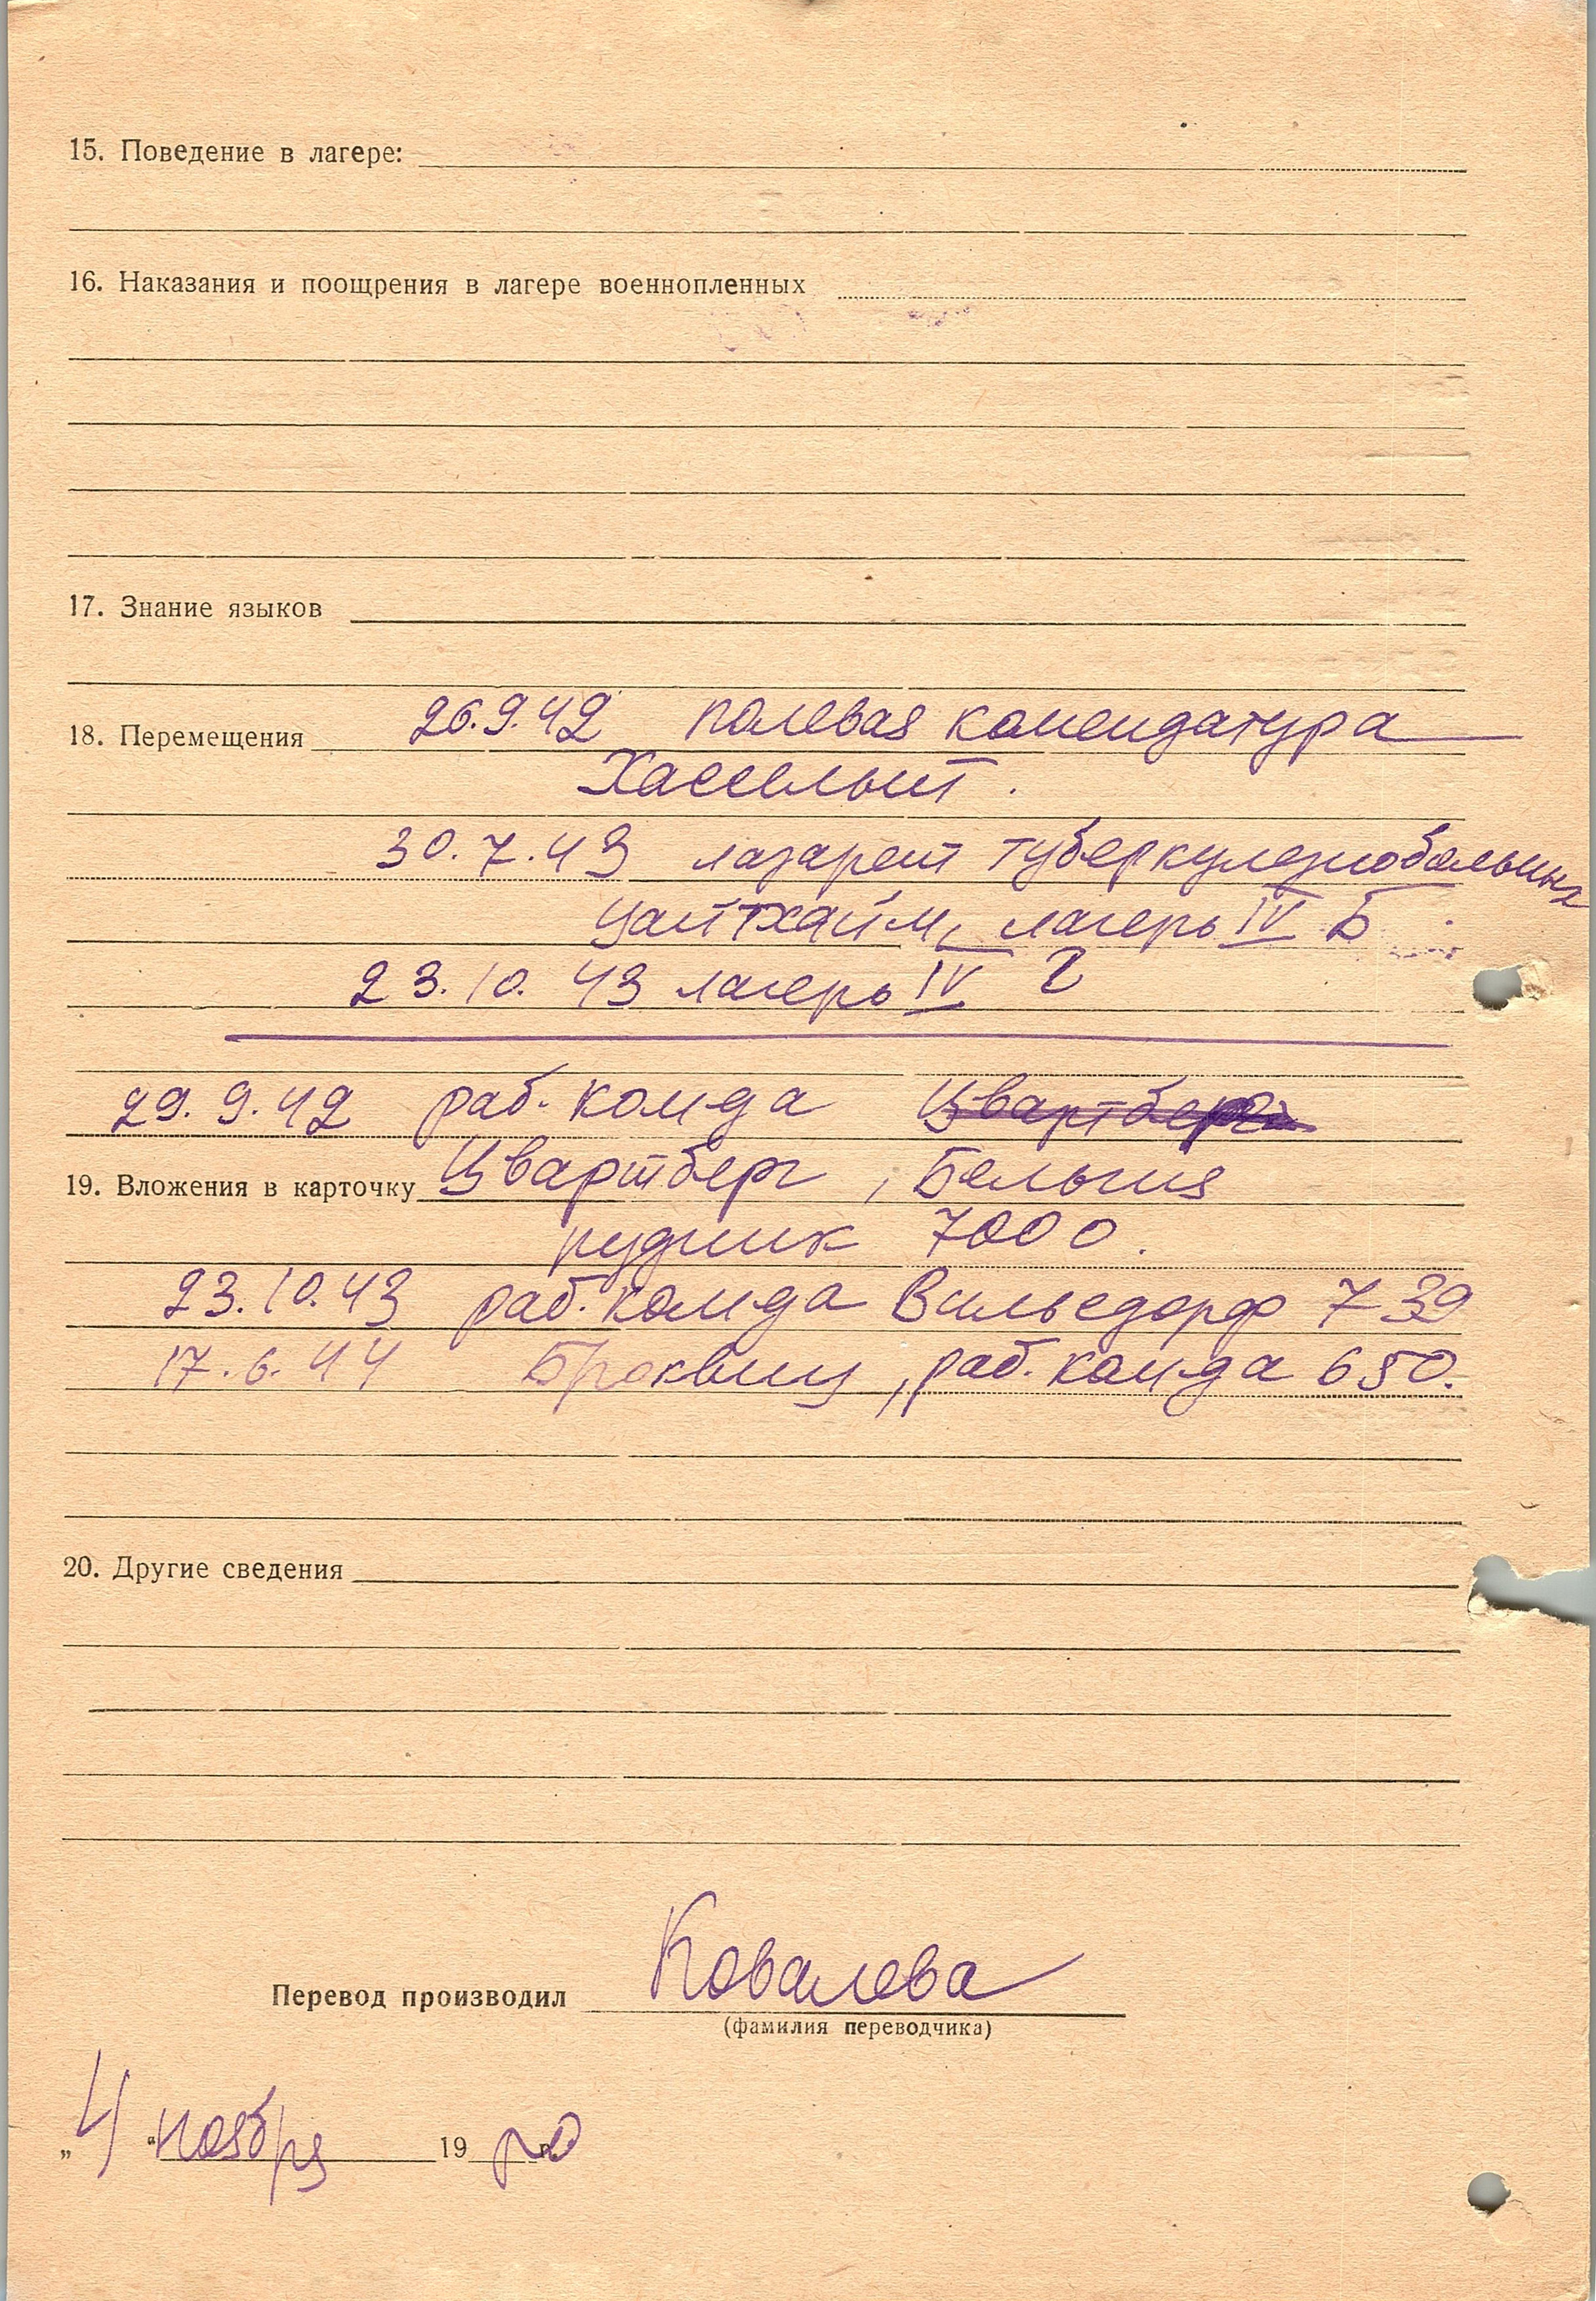 15. Поведение в лагере:
16. Наказания и поощрения в лагере военнопленных
17. Знание языков
18. Перемещения 26.9.42 полевая комендатура
Хассельт.
30.7.43 лазарет туберкулезнобольных
Цайтхайм, лагерь IV Б
23.10.43 лагерь IV
29.9.42 раб. комда Цвартберг
19. Вложения в карточку Цвартберг, Бельгия
рудник 7000.
23.10.43 раб. комда Вильсдорф 739
17.6.44 Броквиц, раб. комда 650.
20. Другие сведения
Перевод производил Ковалева
(фамилия переводчика)
„4“ ноября 19 г.